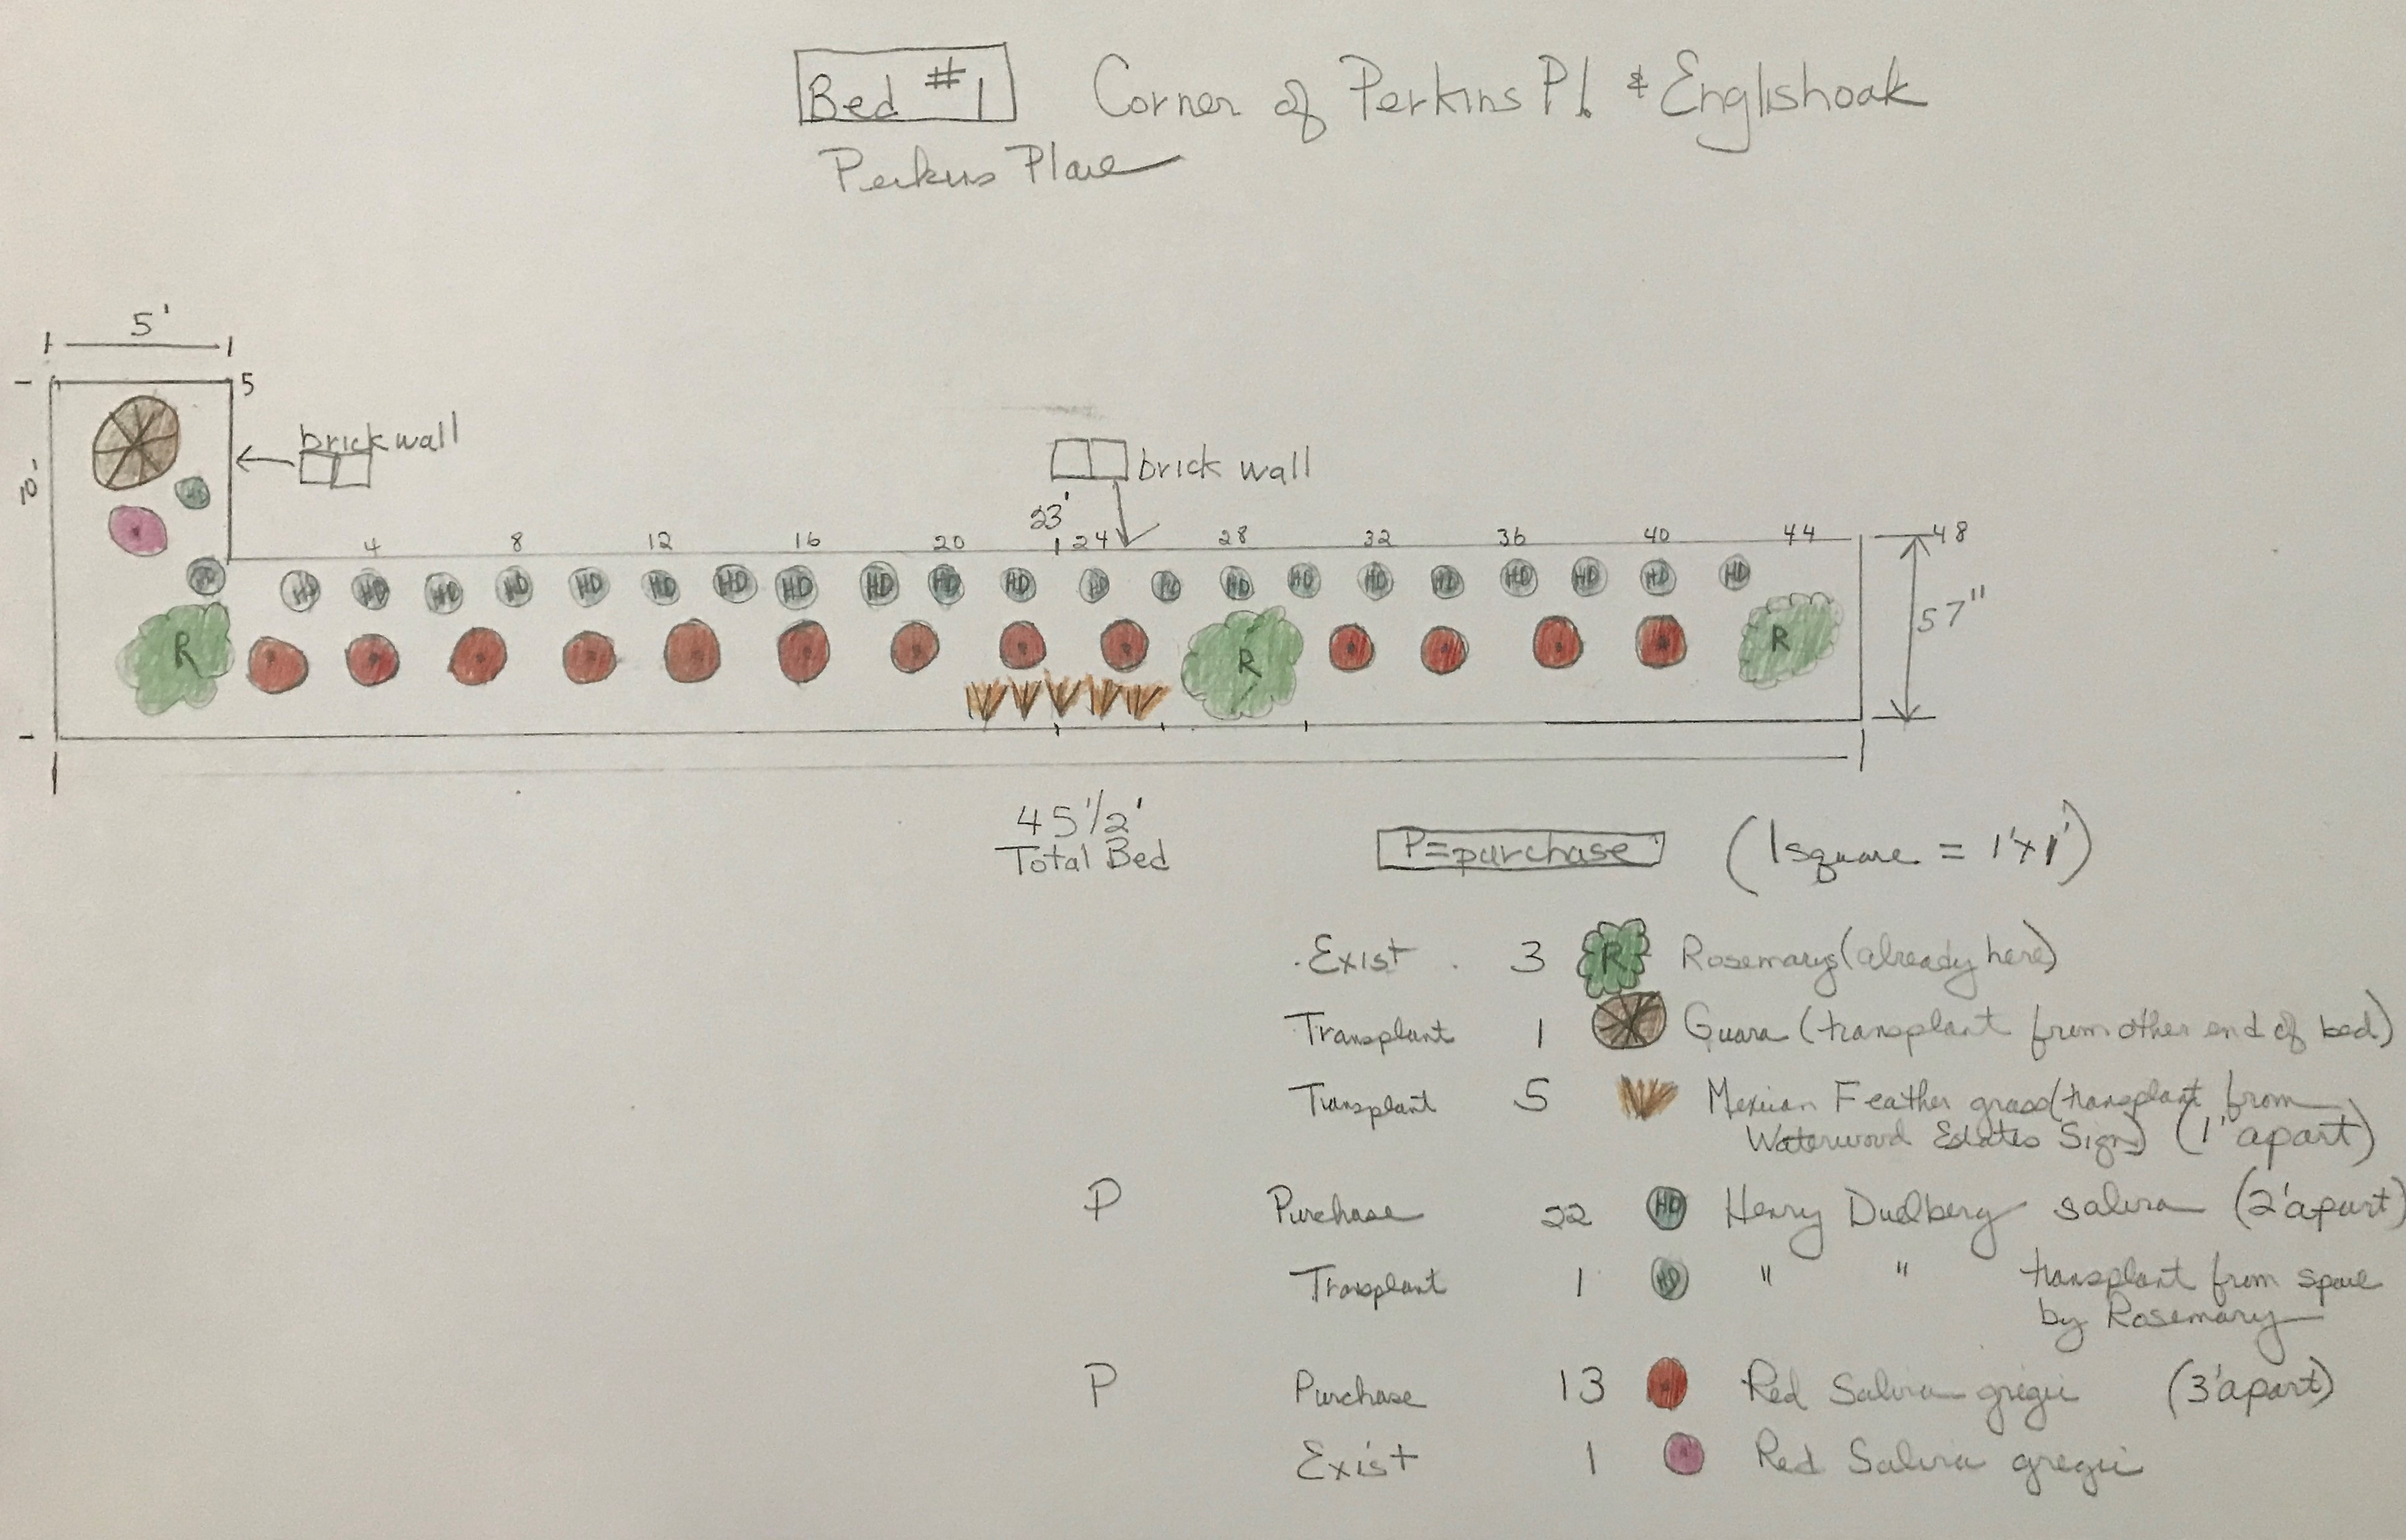 Bed #1 Corner of Perkins Pl. & Englishoak
Perkins Place
5'
5
brick wall
10'
brick wall
23'
4 8 12 16 20 24 28 32 36 40 44 48
HD
HD HD HD HD HD HD HD HD HD HD HD HD HD HD HD HD HD HD HD HD HD HD
R R R
57"
45 1/2'
Total Bed
P=purchase (1 square = 1'x1')
Exist 3 R Rosemarys (already here)
Transplant 1 Guara (transplant from other end of bed)
Transplant 5 Mexican Feather grass (transplant from
Waterwood Estates Sign) (1' apart)
P Purchase 22 HD Henry Duelberg salvia (2' apart)
Transplant 1 HD " " transplant from space
by Rosemary
P Purchase 13 Red Salvia gregii (3' apart)
Exist 1 Red Salvia gregii